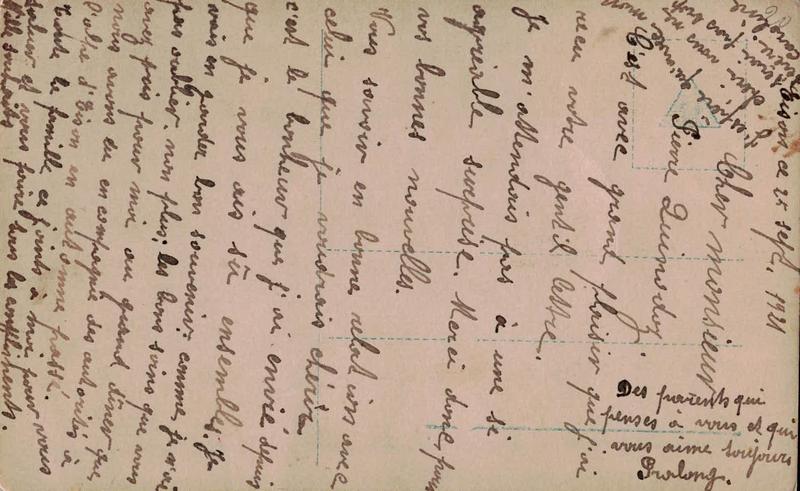 Eison ce 25 sept. 1921
Cher monsieur
Pierre Quinodoz
C'est avec grand plaisir que j'ai
recu votre gentil lettre.
Je m'attendais pas à une si
agréable surprise. Merci donc pour
vos bonnes nouvelles.
Vous savoir en bonne relations avec
celui que je voudrais chérir
c'est le bonheur que j'ai envié depuis
que je vous ais sû ensembles. Je
vais en garder bon souvenir comme je n'ai
pas oublier non plus, les bons soins que vous
avez pris pour moi au grand dîner que
nous avons eu en compagnie des autorités à
d'Eison en automne passé.
Toute la famille ce joints à moi pour vous
saluer et vous faire tous les compliments.
Des parents qui
penses à vous et qui
vous aime toujours
Pralong.